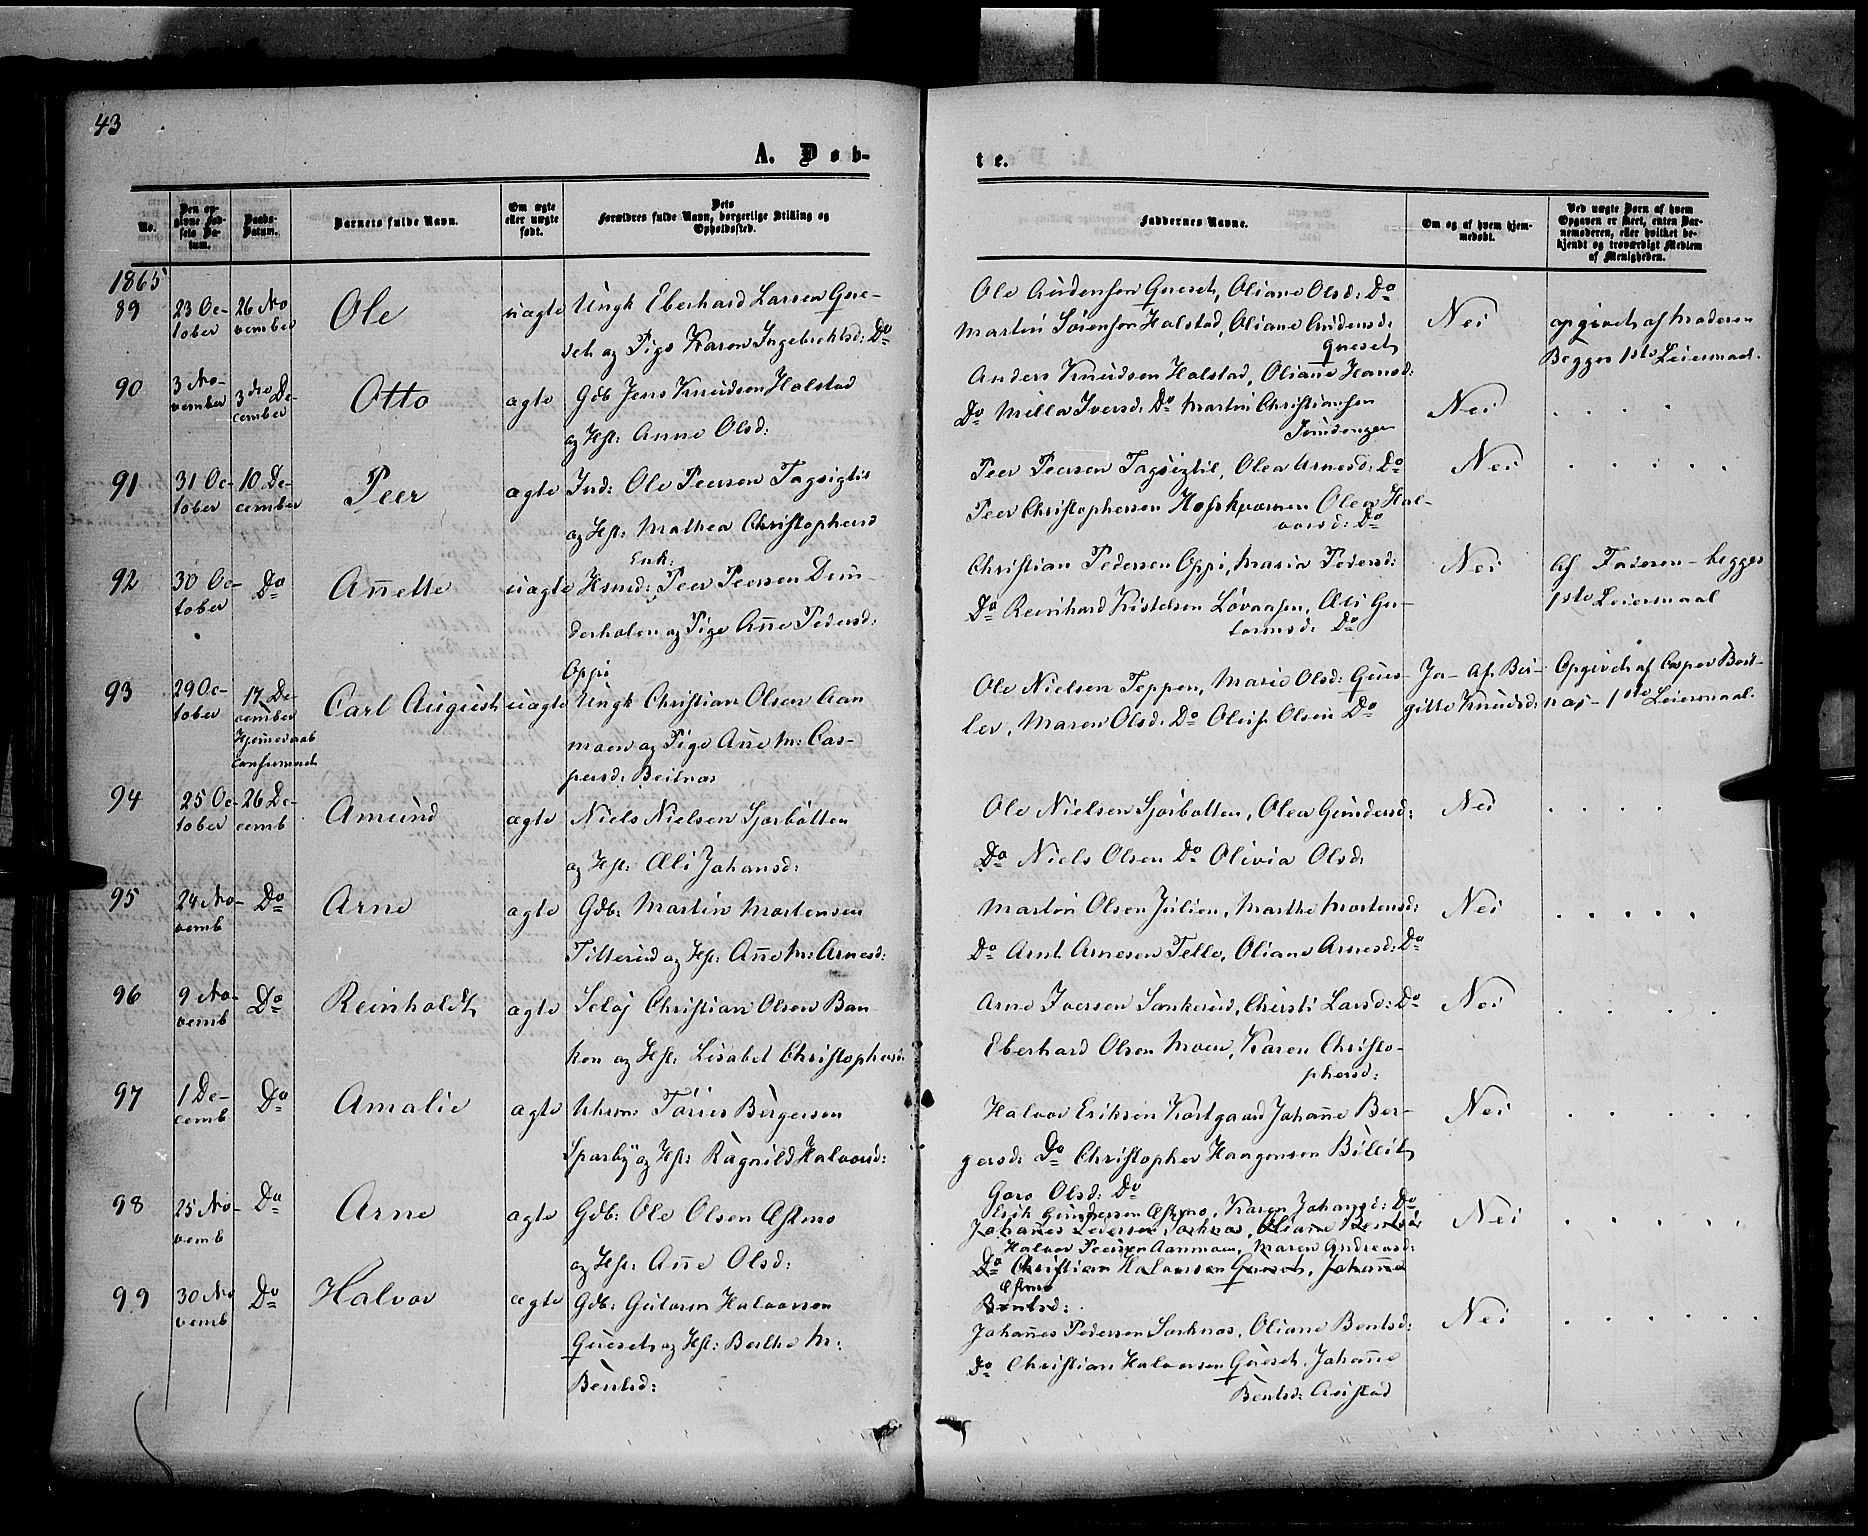 43
A. Døb-
te.
No.
Den op-
givne Fød-
sels Da-
tum.
Daabs-
Datum.
Barnets fulde Navn.
Om ægte
eller uægte
født.
Dets
Forældres fulde Navn, borgerlige Stilling og
Opholdssted.
Faddernes Navne.
Om og af hvem hjem-
medøbt.
Ved uægte Børn af hvem
Opgaven er skeet, enten Bar-
nemoderen, eller hvilket be-
kjendt og troværdigt Medlem
af Menigheden.
1865
89
23 Oc-
tober
26 No
vember
Ole
uægte
Ungk Eberhard Larsen Gue-
set og Pige Karen Ingebrektsd: Do
Ole Audensen Gueset, Oliane Olsd: Do
Martin Sørensen Halstad, Oliane Audensd:
Gueset
Nei
opgivet af Moderen
Begges 1ste Leiermaal.
90
3 No-
vember
3die De-
cember
Otto
ægte
Gdb Jens Knudsen Halstad
og Hst: Anne Olsd:
Anders Knudsen Halstad, Oliane Hansd:
Do Milla Iversd: Do Martin Christiansen
Nei
91
31 Oc-
tober
10 De-
cember
Peer
ægte
Ind: Ole Peersen Tagsigtil
og Hst: Mathea Christophersd
Peer Peersen Tagsigtil, Olea Arnesd: Do
Peer Christophersen Hofskværnen Olea Hal-
vorsd: Do
Nei
92
30 Oc-
tober
Do
Annette
uægte
Enk.
Hsmd: Peer Peersen Dun-
derholen og Pige Anne Pedersd:
Oppi
Christian Pedersen Oppi, Maria Pedersd:
Do Reinhard Kistelsen Lövaasen, Æli Gu-
tormsd: Do
Nei
Af Faderen - begges
1ste Leiermaal
93
29 Oc-
tober
17 De-
cember
Hjemmedaab
confirmeret
Carl August
uægte
Ungk Christian Olsen Aan
moen og Pige Anne M: Cas-
persd: Beitnas
Ole Nielsen Teppen, Marie Olsd: Gues-
ler, Maren Olsd: Do Oluf Olsen Do
Ja - Af Bir-
gitte Knudsd:
Opgivet af Casper Beit-
nas - 1ste Leiermaal.
94
25 Oc-
tober
26 De-
cemb
Amund
ægte
Niels Nielsen Sjorbotten
og Hst: Æli Johansd:
Ole Nielsen Sjorbotten, Olea Gundersd:
Do Niels Olsen Do Olivia Olsd:
Nei
95
24 No-
vemb
Do
Arne
ægte
Gdb: Martin Mortensen
Titterud og Hst: Anne M: Arnesd:
Martin Olsen Julien, Marthe Mortensd:
Do Arnt Arnesen Telle, Oliane Arnesd: Do
Nei
96
9 No-
vemb
Do
Reinholdt
ægte
Selvj Christian Olsen Ban-
ken og Hst: Lisabet Christophersd
Arne Iversen Sankerud, Christi Larsd: Do
Eberhard Olsen Moen, Karen Christo-
phersd:
Nei
97
1 De-
cemb
Do
Amalie
ægte
Uhrm: Torrer Børgersen
Sparby og Hst: Ragnild Halvorsd:
Halvor Eriksen Kortgaard Johanne Bør-
gersd: Do Christopher Haagensen Billit
Goro Olsd: Do
Nei
98
25 No-
vemb
Do
Arne
ægte
Gdb: Ole Olsen Æstmo
og Hst: Anne Olsd:
Erik Gundersen Æstmo, Karen Johansd: Do
Johannes Pedersen Sorknas, Oliane Bentsd:
Halvor Peersen Aanmoen, Maren Andreasd:
Do Christian Halvorsen Gueset, Johanne
Æstmo
Bentsd:
Nei
99
30 No
vemb
Do
Halvor
ægte
Gdb: Gutorm Halvorsen
Gueset og Hst: Berthe M:
Bentsd:
Johannes Pedersen Sorknas, Oliane Bentsd:
Do Christian Halvorsen Gueset, Johanne
Bentsd: Austad
Nei